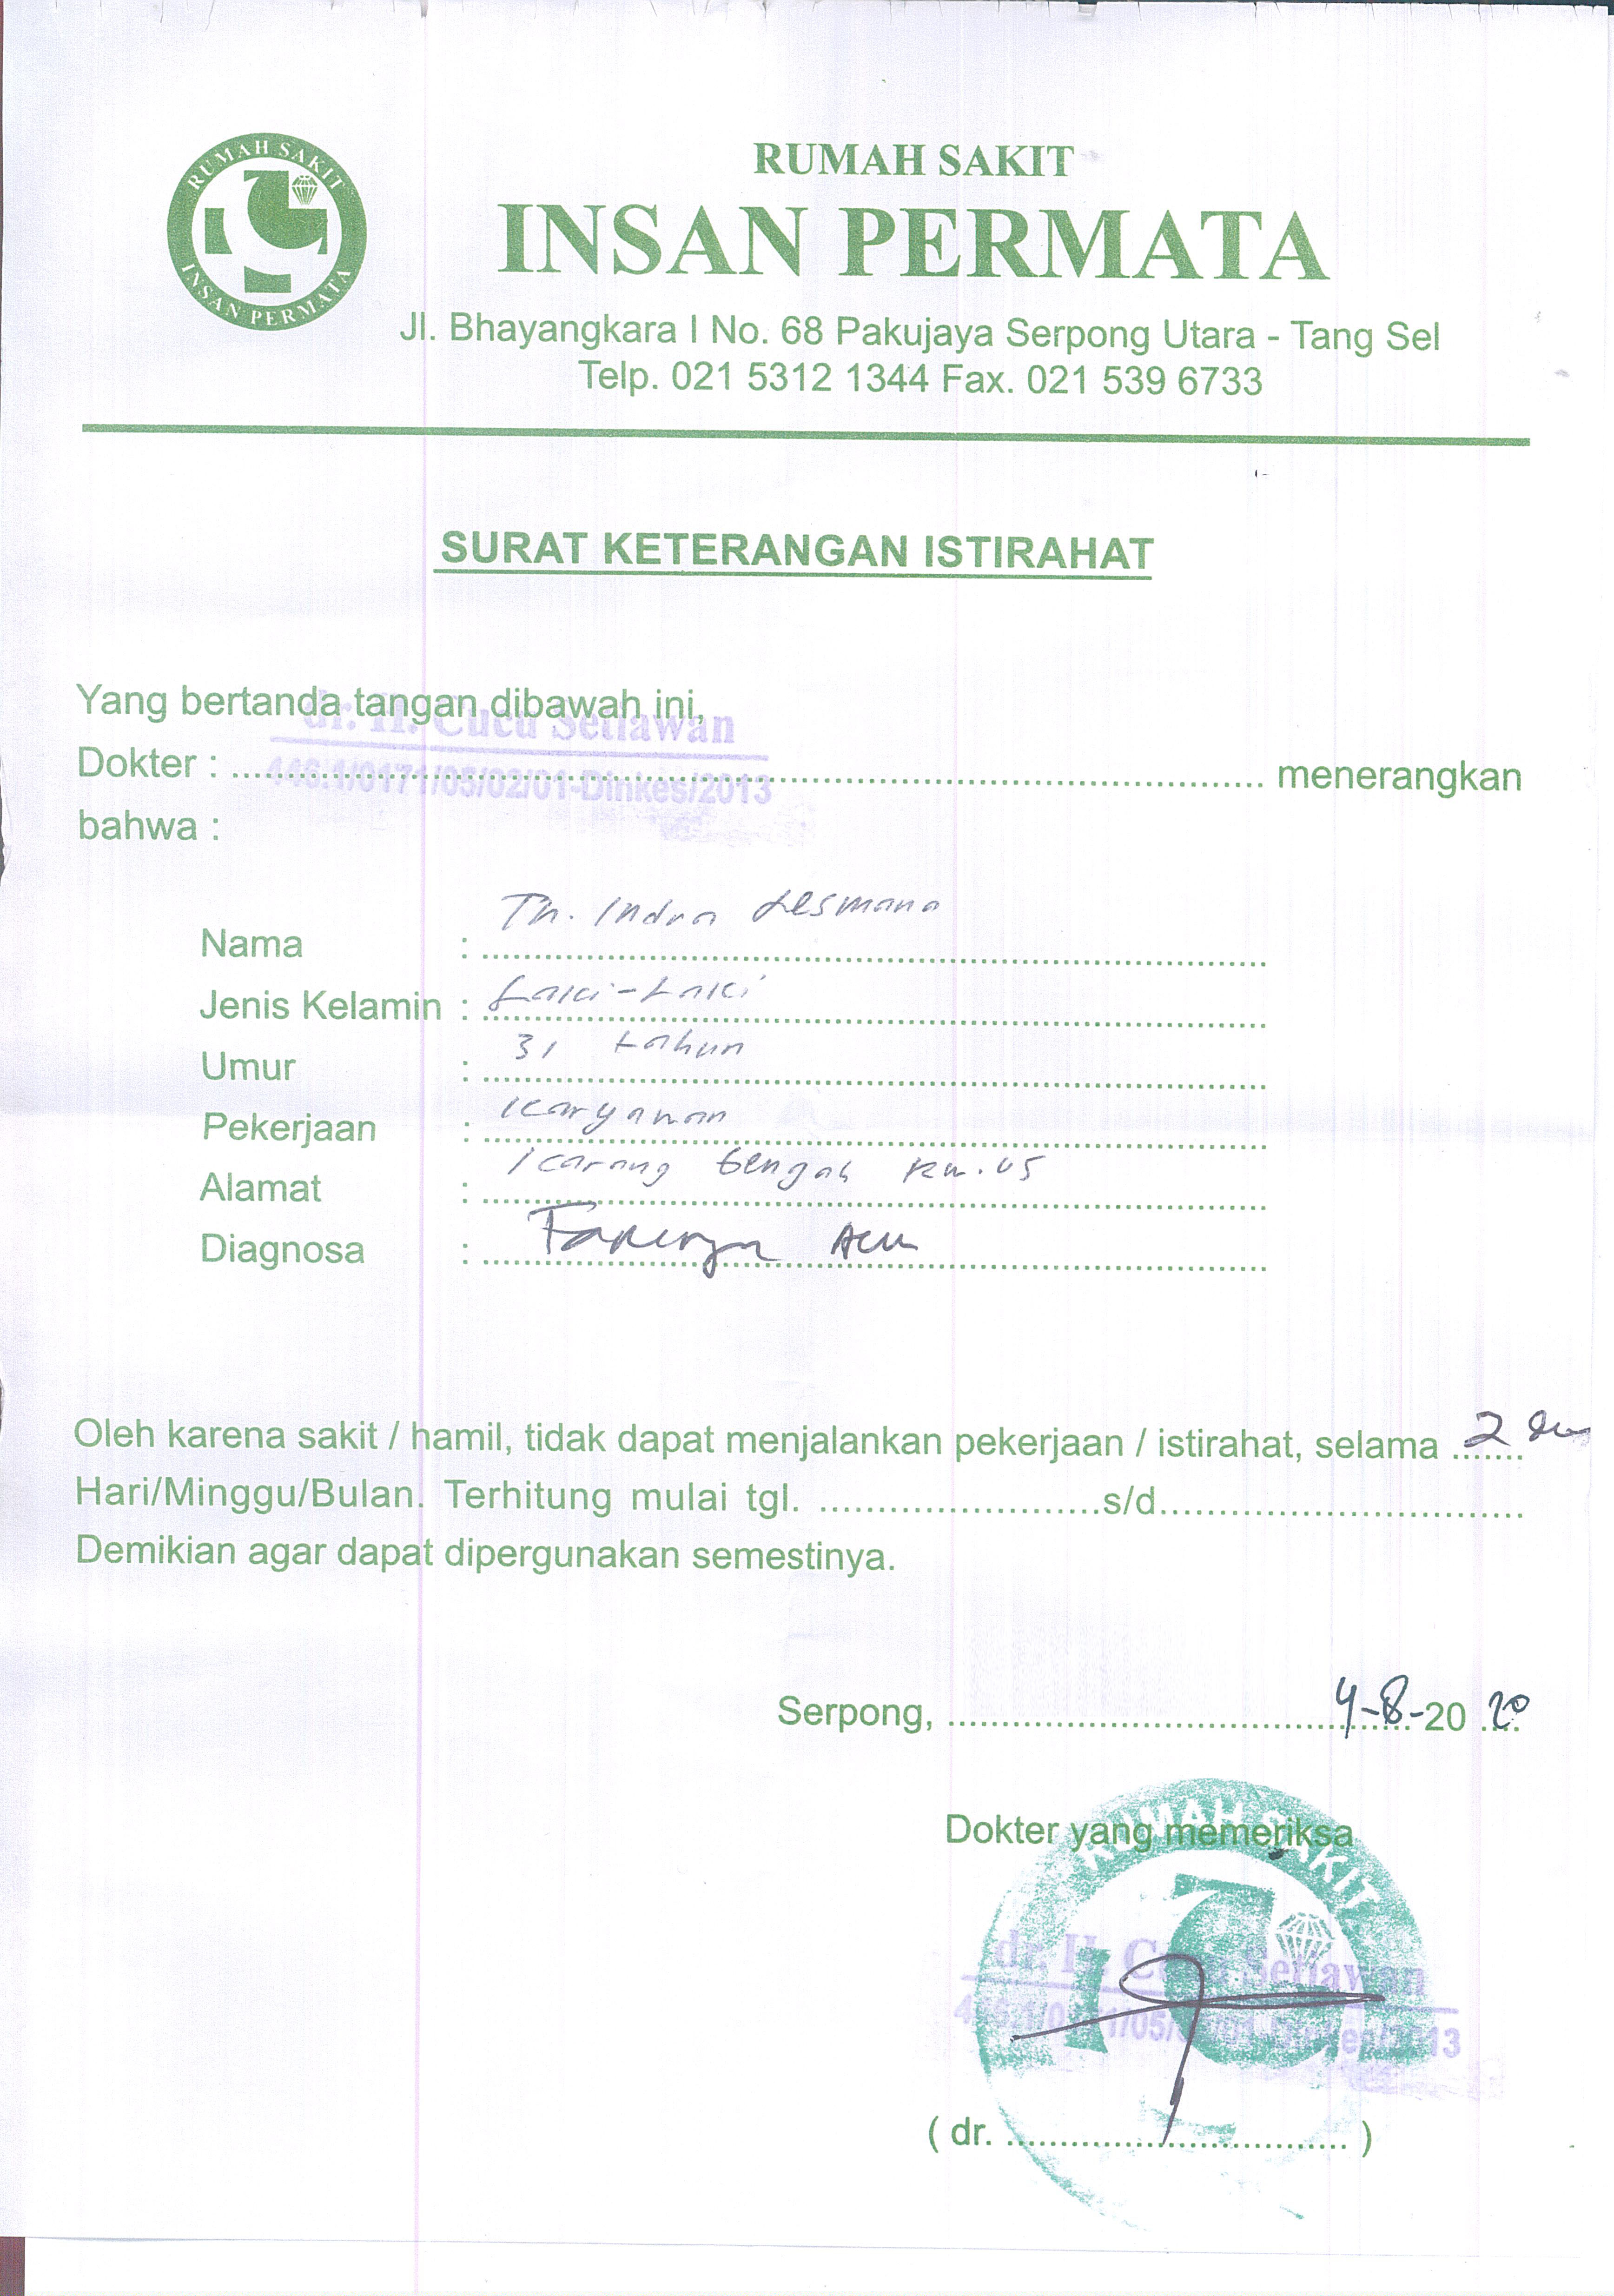 RUMAH SAKIT
INSAN PERMATA
RUMAH SAKIT
INSAN PERMATA
Jl. Bhayangkara I No. 68 Pakujaya Serpong Utara - Tang Sel
Telp. 021 5312 1344 Fax. 021 539 6733
SURAT KETERANGAN ISTIRAHAT
Yang bertanda tangan dibawah ini,
dr. H. Cucu Setiawan
Dokter : menerangkan
446.1/0171/05/02/01-Dinkes/2013
bahwa :
Nama : Tn. Indra Lesmana
Jenis Kelamin : Laki-Laki
Umur : 31 tahun
Pekerjaan : Karyawan
Alamat : Karang tengah Rw. 05
Diagnosa :
Oleh karena sakit / hamil, tidak dapat menjalankan pekerjaan / istirahat, selama 2
Hari/Minggu/Bulan. Terhitung mulai tgl. s/d
Demikian agar dapat dipergunakan semestinya.
Serpong, 4-8-20 20
Dokter yang memeriksa
RUMAH SAKIT
dr. H. Cucu Setiawan
( dr. )